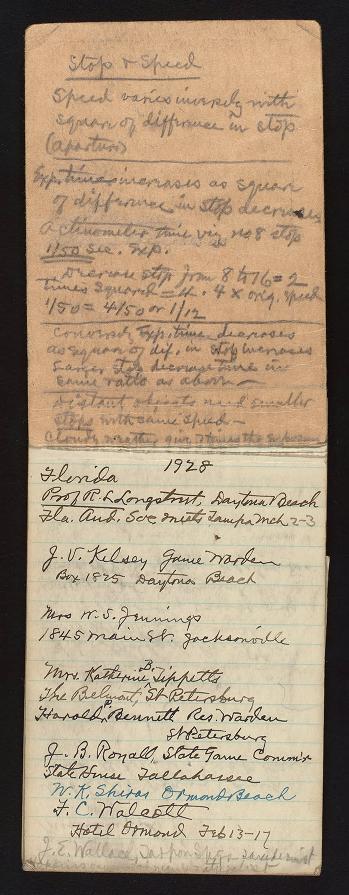 Stop & Speed
Speed varies inversely with
square of difference in stop
(aperture)
Exp. time increases as square
of difference in stop decreases
Actinometer time viz no 8 stop
1/50 sec. Exp.
Decrease stop from 8 to 16 = 2
times squared = 4. 4 x orig. speed
1/50 = 4/50 or 1/12
Conversely Exp. time decreases
as square of dif. in stop increases
Larger stop decrease time in
same ratio as above —
Distant objects need smaller
stops with same speed —
Cloudy weather give times the exposure
1928
Florida
Prof R. L. Longstreet, Daytona Beach
Fla. Aud. Soc meets Tampa Mch 2-3
J. V. Kelsey Game Warden
Box 1825 Daytona Beach
Mrs W. S. Jennings
1845 Main St. Jacksonville
Mrs. Katherine B. Tippetts
The Belmont, St Petersburg
Harold P. Bennett Res. Warden
St Petersburg
J. B. Royall, State Game Comm'r
State House Tallahassee
W. K. Shiras Ormond Beach
F. C. Walcott
Hotel Ormond Feb 13-17
J. E. Wallace, Tarpon Spgs